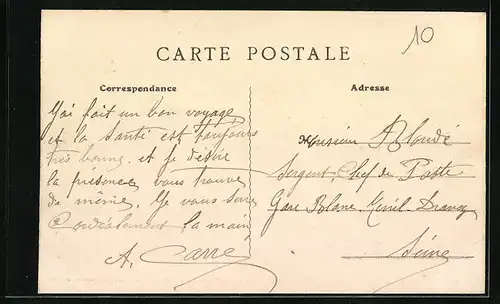 10
CARTE POSTALE
Correspondance
J'ai fait un bon voyage
et la santé est toujours
très bonne. et je désire
la présence vous trouve
de même. Je vous serre
Cordialement la main
A. Carré
Adresse
Monsieur Blondé
Sergent, Chef de Poste
Gare Blanc-Mesnil-Drancy
Seine